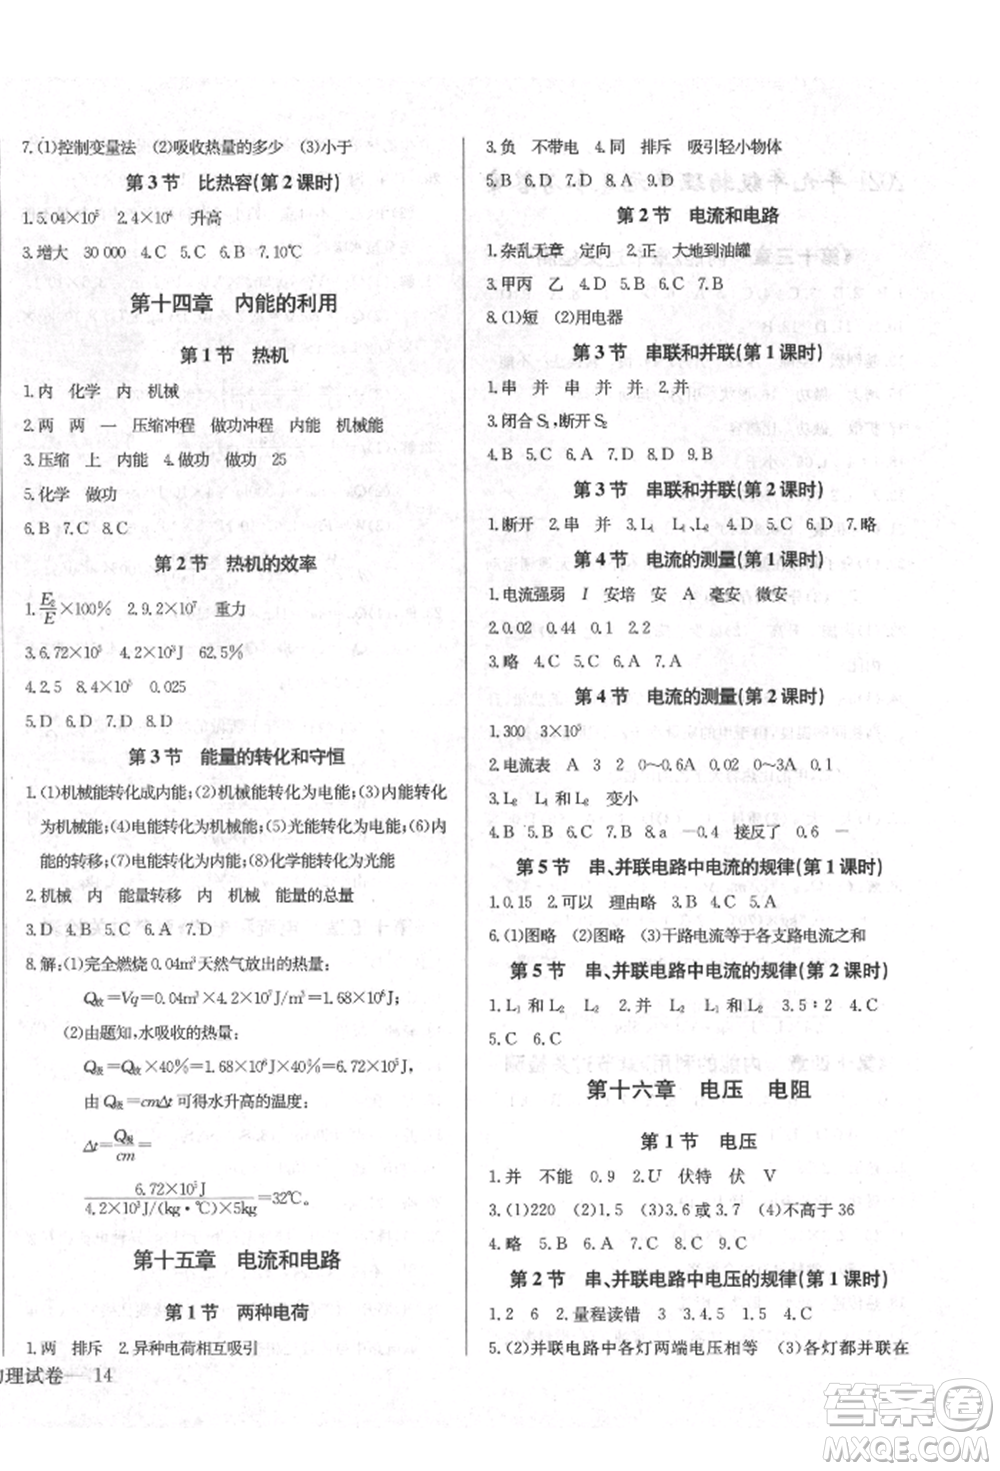 7.(1)控制变量法 (2)吸收热量的多少 (3)小于
第3节 比热容(第2课时)
1.5.04×10⁵ 2.4×10⁵ 升高
3.增大 30 000 4.C 5.C 6.B 7.10℃
第十四章 内能的利用
第1节 热机
1.内 化学 内 机械
2.两 两 一 压缩冲程 做功冲程 内能 机械能
3.压缩 上 内能 4.做功 做功 25
5.化学 做功
6.B 7.C 8.C
第2节 热机的效率
1.E₂/E×100% 2.9.2×10⁷ 重力
3.6.72×10⁵ 4.2×10⁵J 62.5%
4.2.5 8.4×10⁵ 0.025
5.D 6.D 7.D 8.D
第3节 能量的转化和守恒
1.(1)机械能转化成内能;(2)机械能转化为电能;(3)内能转化
为机械能;(4)电能转化为机械能;(5)光能转化为电能;(6)内
能的转移;(7)电能转化为内能;(8)化学能转化为光能
2.机械 内 能量转移 内 机械 能量的总量
3.D 4.B 5.B 6.A 7.D
8.解:(1)完全燃烧0.04m³天然气放出的热量:
Q放=Vq=0.04m³×4.2×10⁷J/m³=1.68×10⁶J
(2)由题知,水吸收的热量:
Q吸=Q放×40%=1.68×10⁶J×40%=6.72×10⁵J
由 Q吸=cmΔt 可得水升高的温度:
Δt=Q吸/cm=
6.72×10⁵J/4.2×10³J/(kg·℃)×5kg=32℃。
第十五章 电流和电路
第1节 两种电荷
1.两 排斥 2.异种电荷相互吸引
理试卷一 14
3.负 不带电 4.同 排斥 吸引轻小物体
5.B 6.D 7.A 8.D 9.D
第2节 电流和电路
1.杂乱无章 定向 2.正 大地到油罐
3.甲丙 乙 4.D 5.D 6.A 7.D
8.(1)短 (2)用电器
第3节 串联和并联(第1课时)
1.串 串 并 并 并 2.并
3.闭合S₁,断开S₂
4.B 5.C 6.A 7.B 8.D 9.B
第3节 串联和并联(第2课时)
1.断开 2.串 并 3.L₁ L₁、L₂ 4.B 5.C 6.D 7.略
第4节 电流的测量(第1课时)
1.电流强弱 I 安培 安 A 毫安 微安
2.0.02 0.44 0.1 2.2
3.略 4.C 5.C 6.A 7.A
第4节 电流的测量(第2课时)
1.300 3×10⁵
2.电流表 A 3 2 0～0.6A 0.02A 0～3A 0.1A
3.L₂ L₁和L₂ 变小
4.B 5.B 6.D 7.B 8.a −0.4 接反了 0.6 −
第5节 串、并联电路中电流的规律(第1课时)
1.0.15 2.可以 理由略 3.A 4.B 5.A
6.(1)图略 (2)图略 (3)干路电流等于各支路电流之和
第5节 串、并联电路中电流的规律(第2课时)
1.L₁和L₂ L₂ 2.并 L₁ L₂ 3.5∶2 4.C
5.C 6.C
第十六章 电压 电阻
第1节 电压
1.并 不能 0.9 2.U 伏特 伏 V
3.(1)220 (2)1.5 (3)3.6或3.7 (4)不高于36
4.略 5.D 6.B 7.C 8.C 9.A
第2节 串、并联电路中电压的规律(第1课时)
1.2 6 2.量程读错 3 3.4.5 1.5 4.C
5.(2)并联电路中各灯两端电压相等 (3)各灯都并联在
答案圈
MXQE.COM